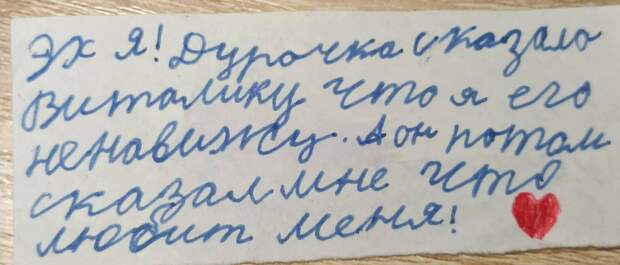 Эх я! Дурочка сказала
Виталику что я его
ненавижу. А он потом
сказал мне что
любит меня!